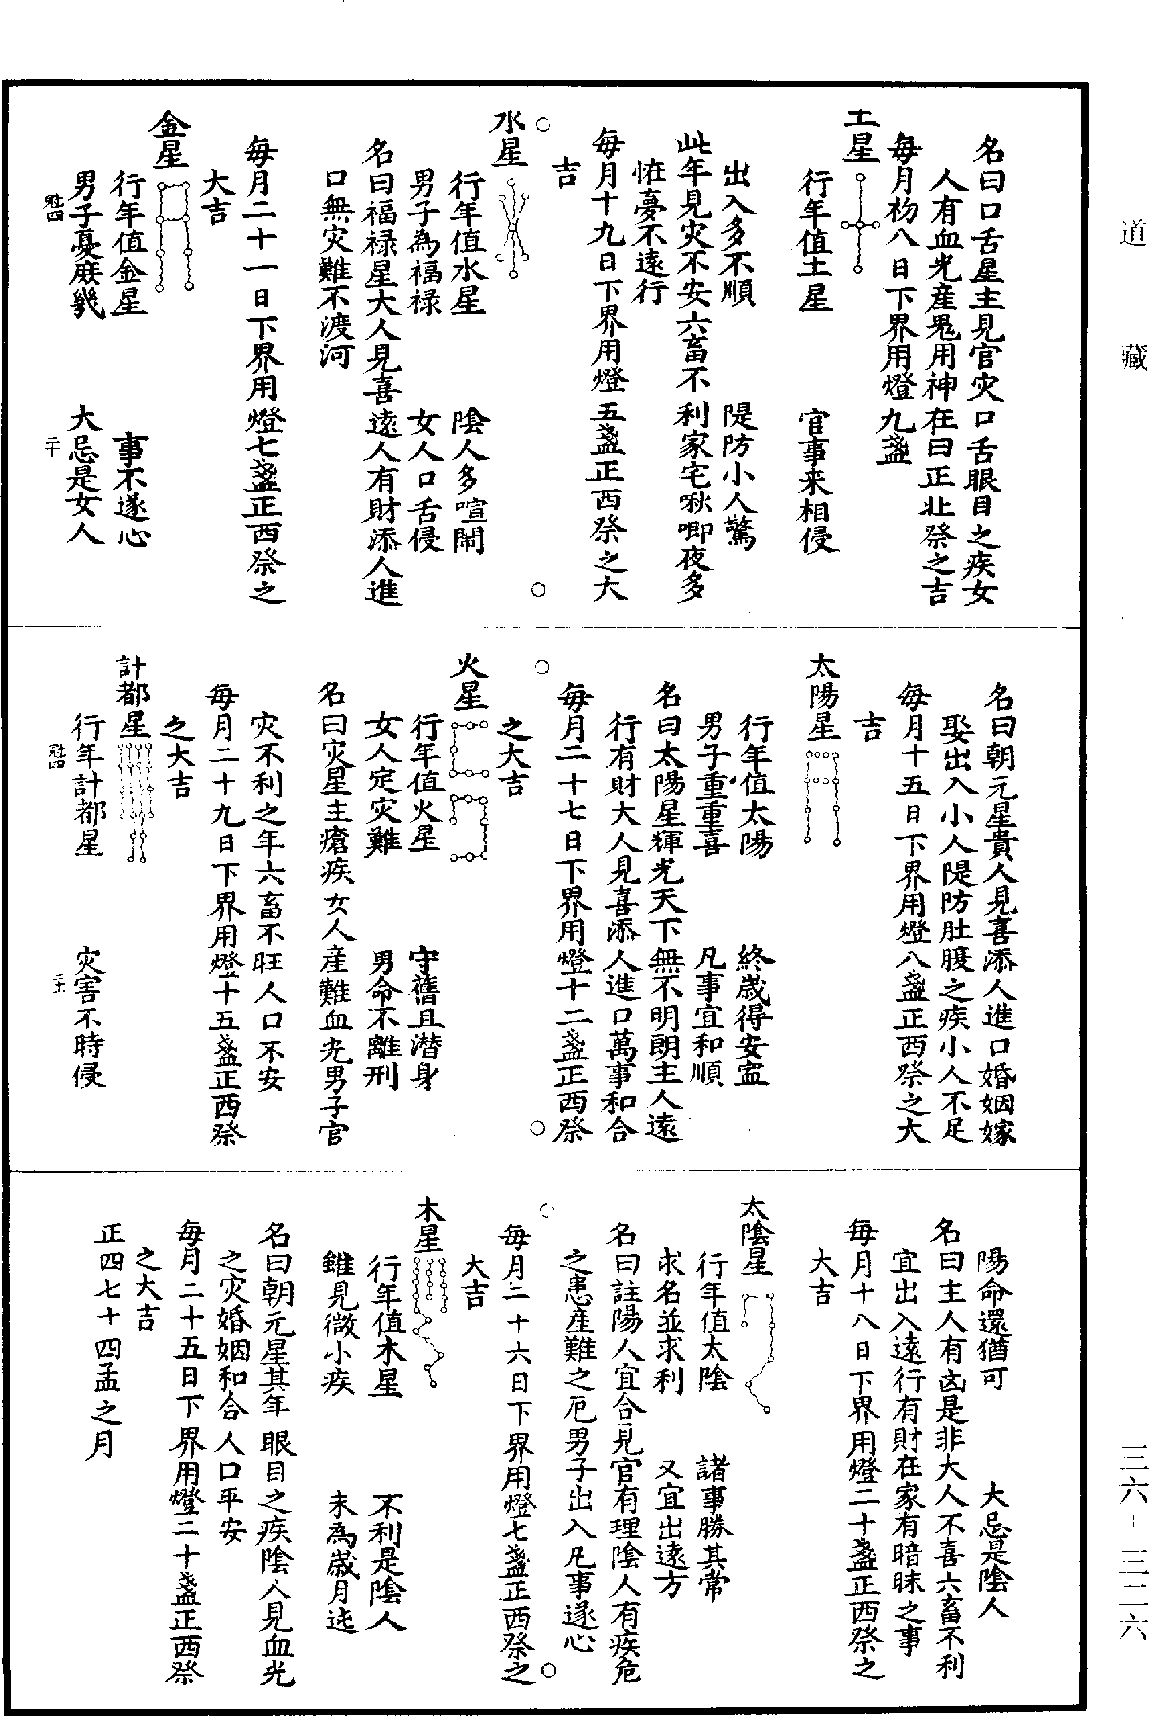 道藏
名曰口舌星主見官灾口舌眼目之疾女
人有血光産鬼用神在曰正北祭之吉
每月初八日下界用燈九盞
土星
行年值土星　官事来相侵
出入多不順　隄防小人驚
此年見灾不安六畜不利家宅啾唧夜多
恠夢不遠行
每月十九日下界用燈五盞正西祭之大
吉
水星
行年值水星　陰人多喧鬧
男子為福禄　女人口舌侵
名曰福禄星大人見喜遠人有財添人進
口無灾難不渡河
每月二十一日下界用燈七盞正西祭之
大吉
金星
行年值金星　事不遂心
男子憂庶幾　大忌是女人
名曰朝元星貴人見喜添人進口婚姻嫁
娶出入小人隄防肚腹之疾小人不足
每月十五日下界用燈八盞正西祭之大
吉
太陽星
行年值太陽　終歲得安寍
男子重重喜　凡事宜和順
名曰太陽星輝光天下無不明朗主人遠
行有財大人見喜添人進口萬事和合
每月二十七日下界用燈十二盞正西祭
之大吉
火星
行年值火星　守舊且潜身
女人定灾難　男命不離刑
名曰灾星主瘡疾女人産難血光男子官
灾不利之年六畜不旺人口不安
每月二十九日下界用燈十五盞正西祭
之大吉
計都星
行年計都星　灾害不時侵
陽命還猶可　大忌是陰人
名曰主人有凶是非大人不喜六畜不利
宜出入遠行有財在家有暗昧之事
每月十八日下界用燈二十盞正西祭之
大吉
太陰星
行年值太陰　諸事勝其常
求名並求利　又宜出遠方
名曰註陽人宜合見官有理陰人有疾危
之患産難之厄男子出入凡事遂心
每月二十六日下界用燈七盞正西祭之
大吉
木星
行年值木星　不利是陰人
雖見微小疾　未為歲月迍
名曰朝元星其年眼目之疾陰人見血光
之灾婚姻和合人口平安
每月二十五日下界用燈二十盞正西祭
之大吉
正四七十四孟之月
三六-三二六